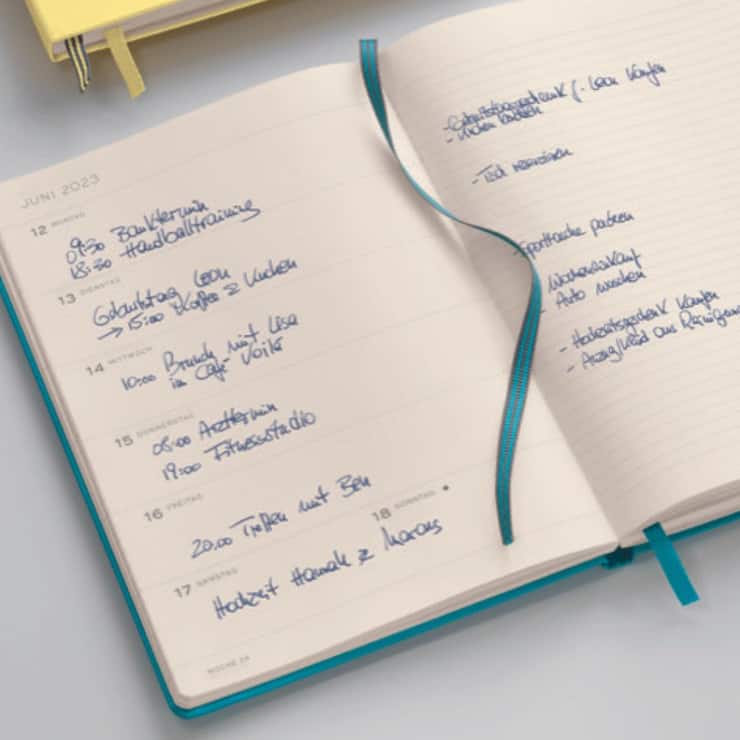 JUNI 2023
12 MONTAG
09:30 Banktermin
18:30 Handballtraining
13 DIENSTAG
Geburtstag Leon
→ 15:00 Kaffee & Kuchen
14 MITTWOCH
10:00 Brunch mit Lisa
im Café
15 DONNERSTAG
08:00 Arzttermin
19:00 Fitnessstudio
16 FREITAG
20:00 Treffen mit Ben
17 SAMSTAG
Hochzeit Hannah & Marcus
18 SONNTAG
WOCHE 24
- Geburtstagsgeschenk f. Leon kaufen
- Kuchen
- Tisch reservieren
- Sporttasche packen
- Wocheneinkauf
- Auto waschen
- Hochzeitsgeschenk kaufen
- Anzug/Kleid aus Reinigung